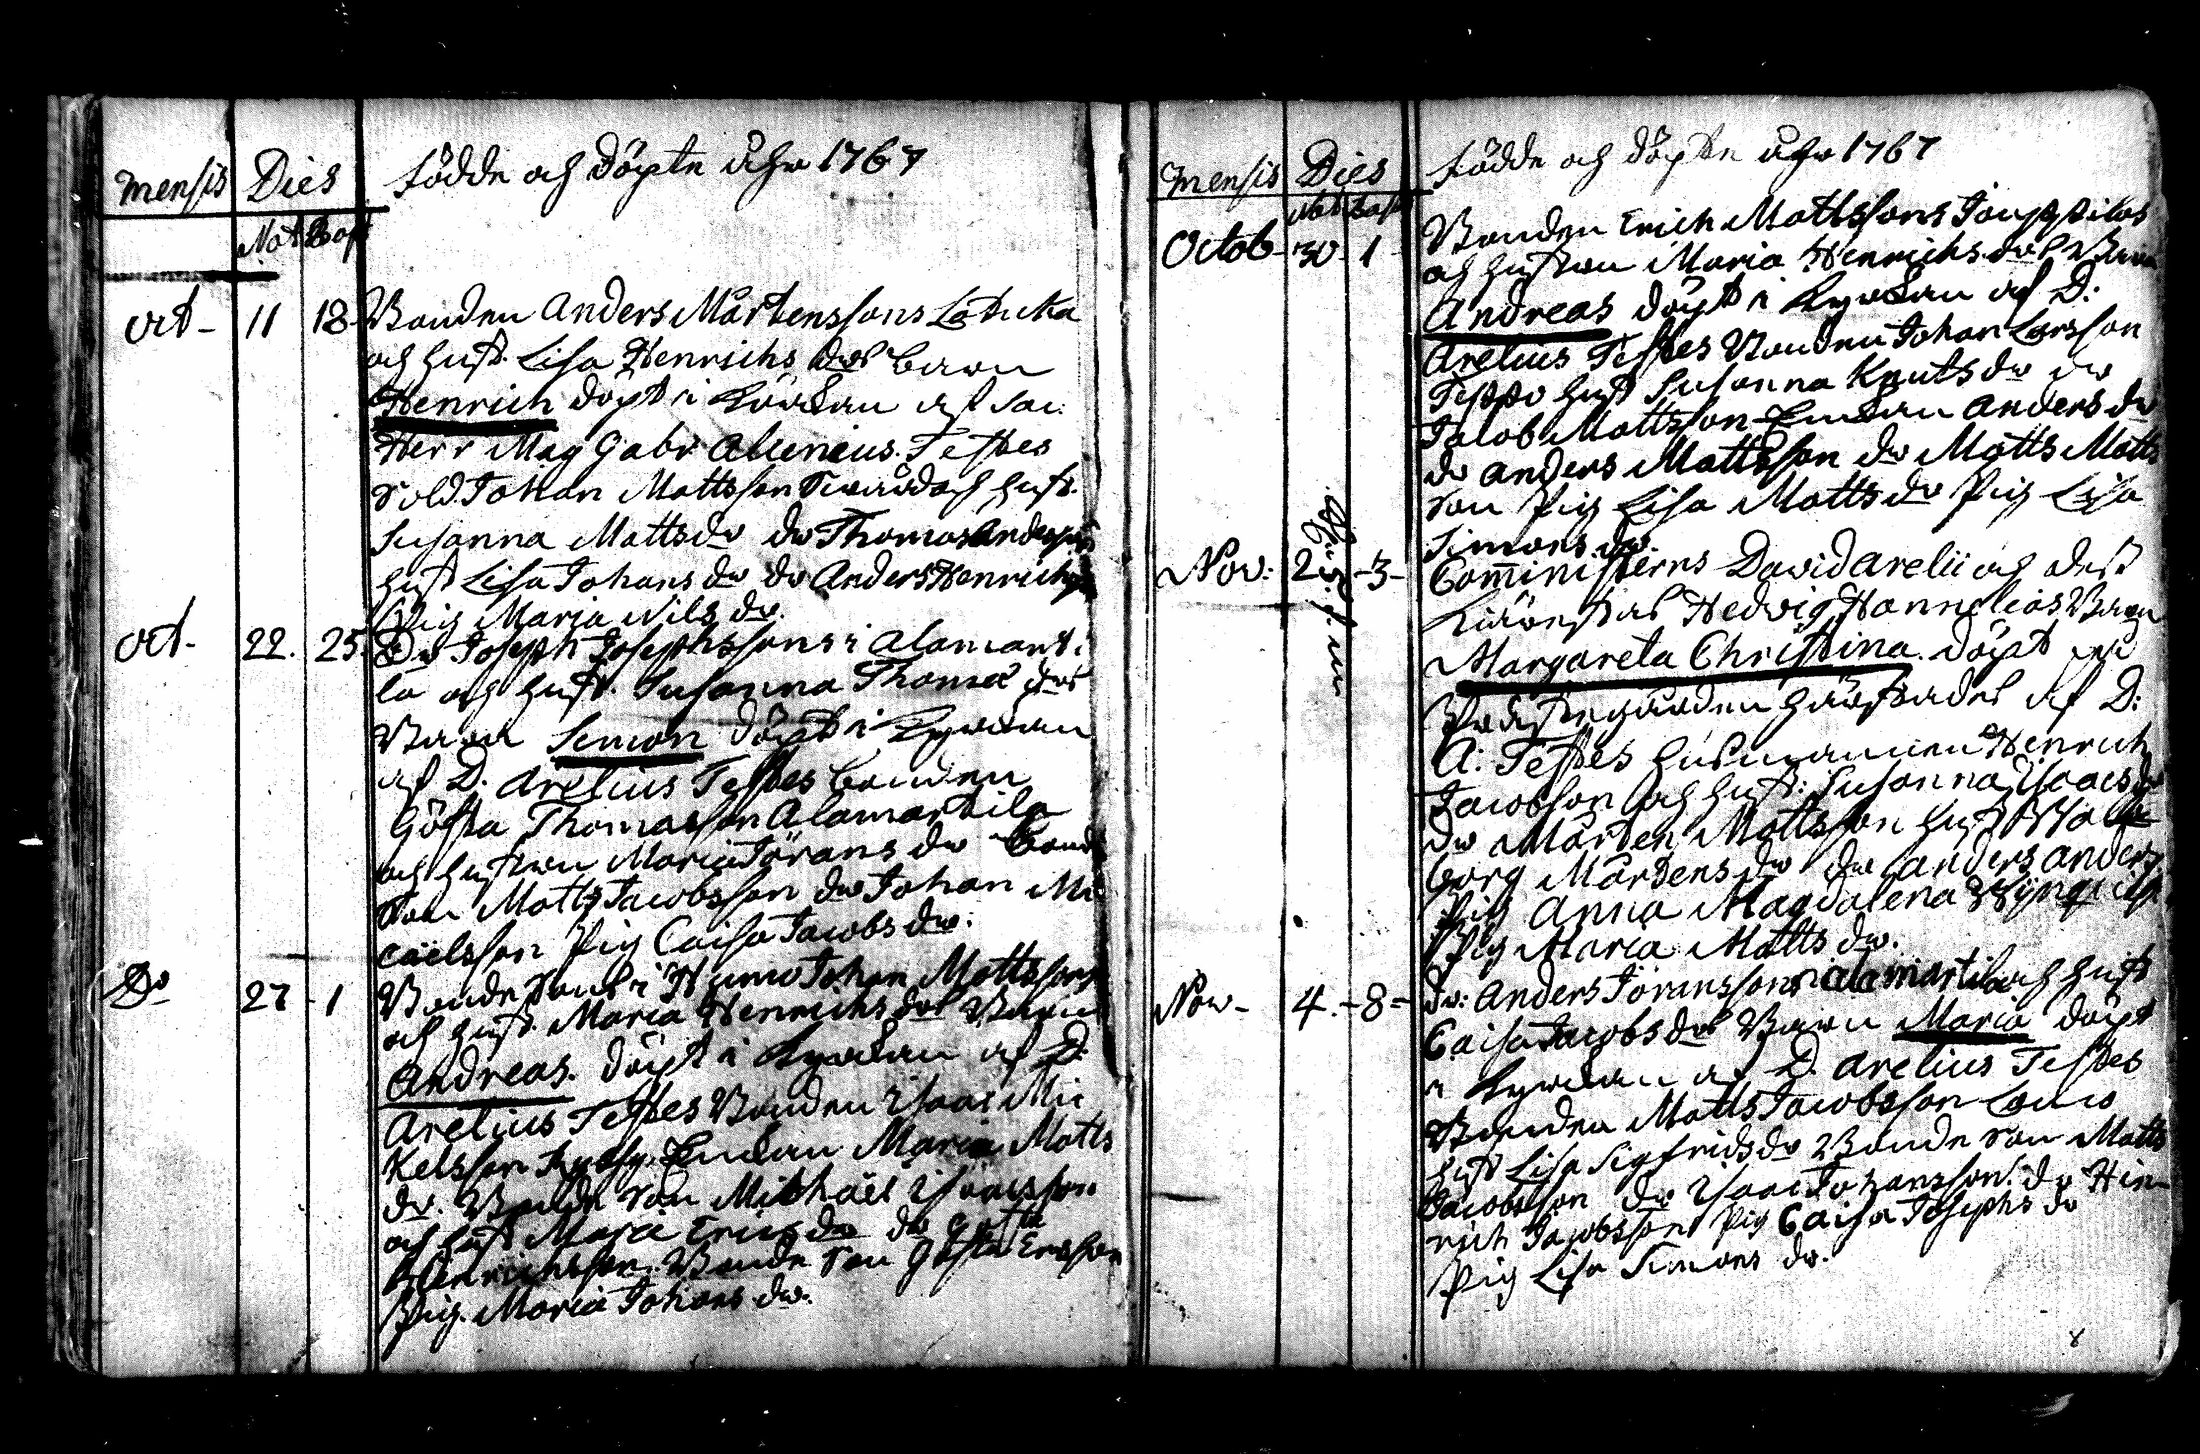 Mensis Dies Födde och döpte åhr 1767
Nat Bapt
Oct- 11 18 Bonden Anders Mårtenssons Latuka
och hust. Lisa Henrichs dors barn
Henrich döpt i Kyrckan af Sac:
Herr Mag Gabr Alleneius. Testes
Sold. Johan Mattsson Swärd och hust.
Susanna Matts dr do Thomas Andersson
hust Lisa Johans dr do Anders Henrichs
Pig Maria Nils dr.
Oct- 22. 25 Do Joseph Josephssons i Alamarti
la och hust. Susanna Thomæ dors
Barn Simon döpt i Kyrckan
af D. Arelius Testes bonden
Gösta Thomasson Alamartila
och hustrun Maria Jörans dr Bonde
Son Matts Jacobsson do Johan Mi
caelsson Pig Caisa Jacobs dr:
Do 27 -1 Bonde Sons i Johan Mattssons
och hust. Maria Henrichs dors Barn
Andreas. döpt i Kyrckan af D.
Arelius Testes Bonden Isaac Mic
kelsson Enckan Maria Matts
dr. Bonde Son Michael Isaacsson
och hust Maja Erics dr do Gösta
Henrichsson. Bonde Son Gösta Ersson
Pig. Maria Johans dr.
Mensis Dies Födde och döpte åhr 1767
Nat Bapt
Octob- 30 -1- Bonden Erich Mattssons
och hustrun Maria Henrichs dors Barn
Andreas döpt i Kyrckan af D:
Arelius Testes Bonden Johan Larsson
Teppo hust Susanna Knuts dr do
Jacob Mattsson Enckan Anders dr
do Anders Mattsson do Matts Matts
Son Pig Lisa Matts dr Pig Lisa
Simons dr.
Nov: 2 -3- Comministerns David Arelii och dess
Kärestas Hedvig Hannelias Barn
Margareta Christina. döpt wid
Prästegården härstädes af D:
A: Testes husmannen Henrich
Jacobsson och hust: Susanna Isaacs dr
do Mårten Mattsson hust Wal
borg Mårtens dr do Anders Anders
Pig Anna Magdalena
Pig Maria Matts dr.
Nov- 4.-8- Do: Anders Jöranssons i Alamartila och hust
Caisa Jacobs dors Barn Maria döpt
i Kyrckan af D. Arelius Testes
Bonden Matts Jacobsson
hust Lisa Sigfrids dr Bonde Son Matts
Jacobsson do Isaac Johansson. do Hin
rich Jacobsson Pig Caisa Josephs dr
Pig Lisa Simons dr.